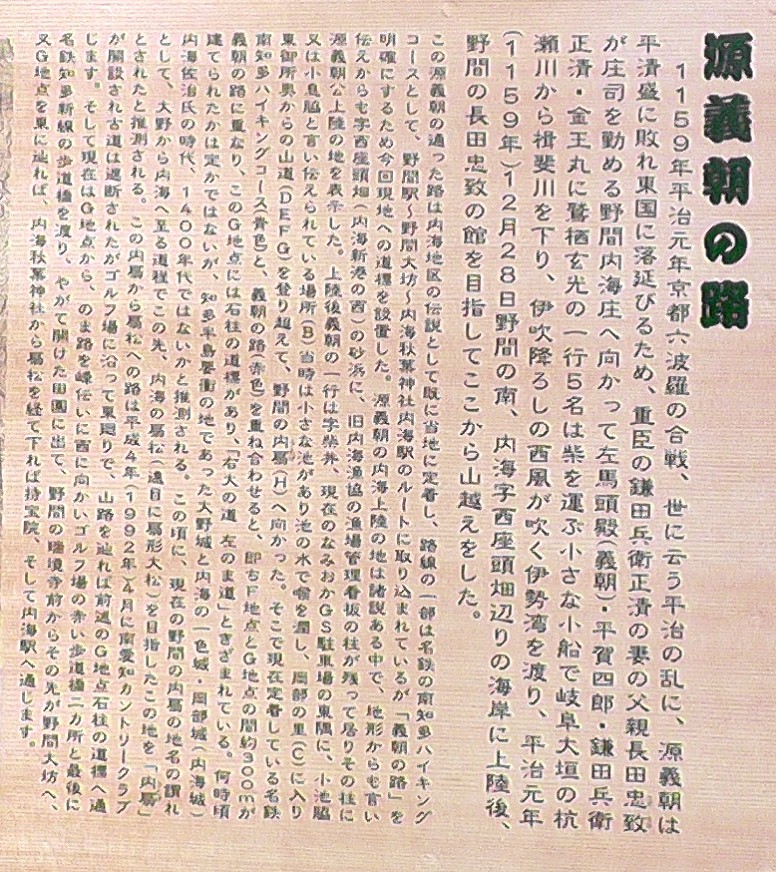 源義朝の路
1159年平治元年京都六波羅の合戦、世に云う平治の乱に、源義朝は
平清盛に敗れ東国に落延びるため、重臣の鎌田兵衛正清の妻の父親長田忠致
が庄司を勤める野間内海庄へ向かって左馬頭殿(義朝)・平賀四郎・鎌田兵衛
正清・金王丸に鷲栖玄光の一行5名は柴を運ぶ小さな小船で岐阜大垣の杭
瀬川から揖斐川を下り、伊吹降ろしの西風が吹く伊勢湾を渡り、平治元年
(1159年)12月28日野間の南、内海字西座頭畑辺りの海岸に上陸後、
野間の長田忠致の館を目指してここから山越えをした。
この源義朝の通った路は内海地区の伝説として既に当地に定着し、路線の一部は名鉄の南知多ハイキング
コースとして、野間駅〜野間大坊〜内海秋葉神社内海駅のルートに取り込まれているが「義朝の路」を
明確にするため今回現地への道標を設置した。源義朝の内海上陸の地は諸説ある中で、地形からも言い
伝えからも字西座頭畑(内海新港の西)の砂浜に、旧内海漁協の漁場管理看板の柱が残って居りその柱に
源義朝公上陸の地を表示した。上陸後義朝の一行は字柴井、現在のなみおかGS駐車場の東隅に、小池脇
又は小息脇と言い伝えられている場所(B)当時は小さな池があり池の水で喉を潤し、岡部の里(C)に入り
東御所奥からの山道(DEFG)を登り超えて、野間の内扇(H)へ向かった。そこで現在定着している名鉄
南知多ハイキングコース(黄色)と、義朝の路(赤色)を重ね合わせると、即ちF地点とG地点の間約300mが
義朝の路に重なり、このG地点には石柱の道標があり、「右大の道 左のま道」ときざまれている。何時頃
建てられたかは定かではないが、知多半島要衝の地であった大野城と内海の一色城・岡部城(内海城)
内海佐治氏の時代、1400年代ではないかと推測される。この頃に、現在の野間の内扇の地名の謂れ
として、大野から内海へ至る道程でこの先、内海の扇松(遠目に扇形大松)を目指したこの地を「内扇」
とされたと推測される。この内扇から扇松への路は平成4年(1992年)4月に南愛知カントリークラブ
が開設され古道は遮断されたがゴルフ場に沿って東廻りで、山路を辿れば前述のG地点石柱の道標へ通
じます。そして現在はG地点から、のま路を峰伝いに西に向かいゴルフ場の赤い歩道橋二カ所と最後に
名鉄知多新線の歩道橋を渡り、やがて開けた田園に出て、野間の瑞境寺前からその先が野間大坊へ、
又G地点を東に辿れば、内海秋葉神社から扇松を経て下れば持宝院、そして内海駅へ通じます。